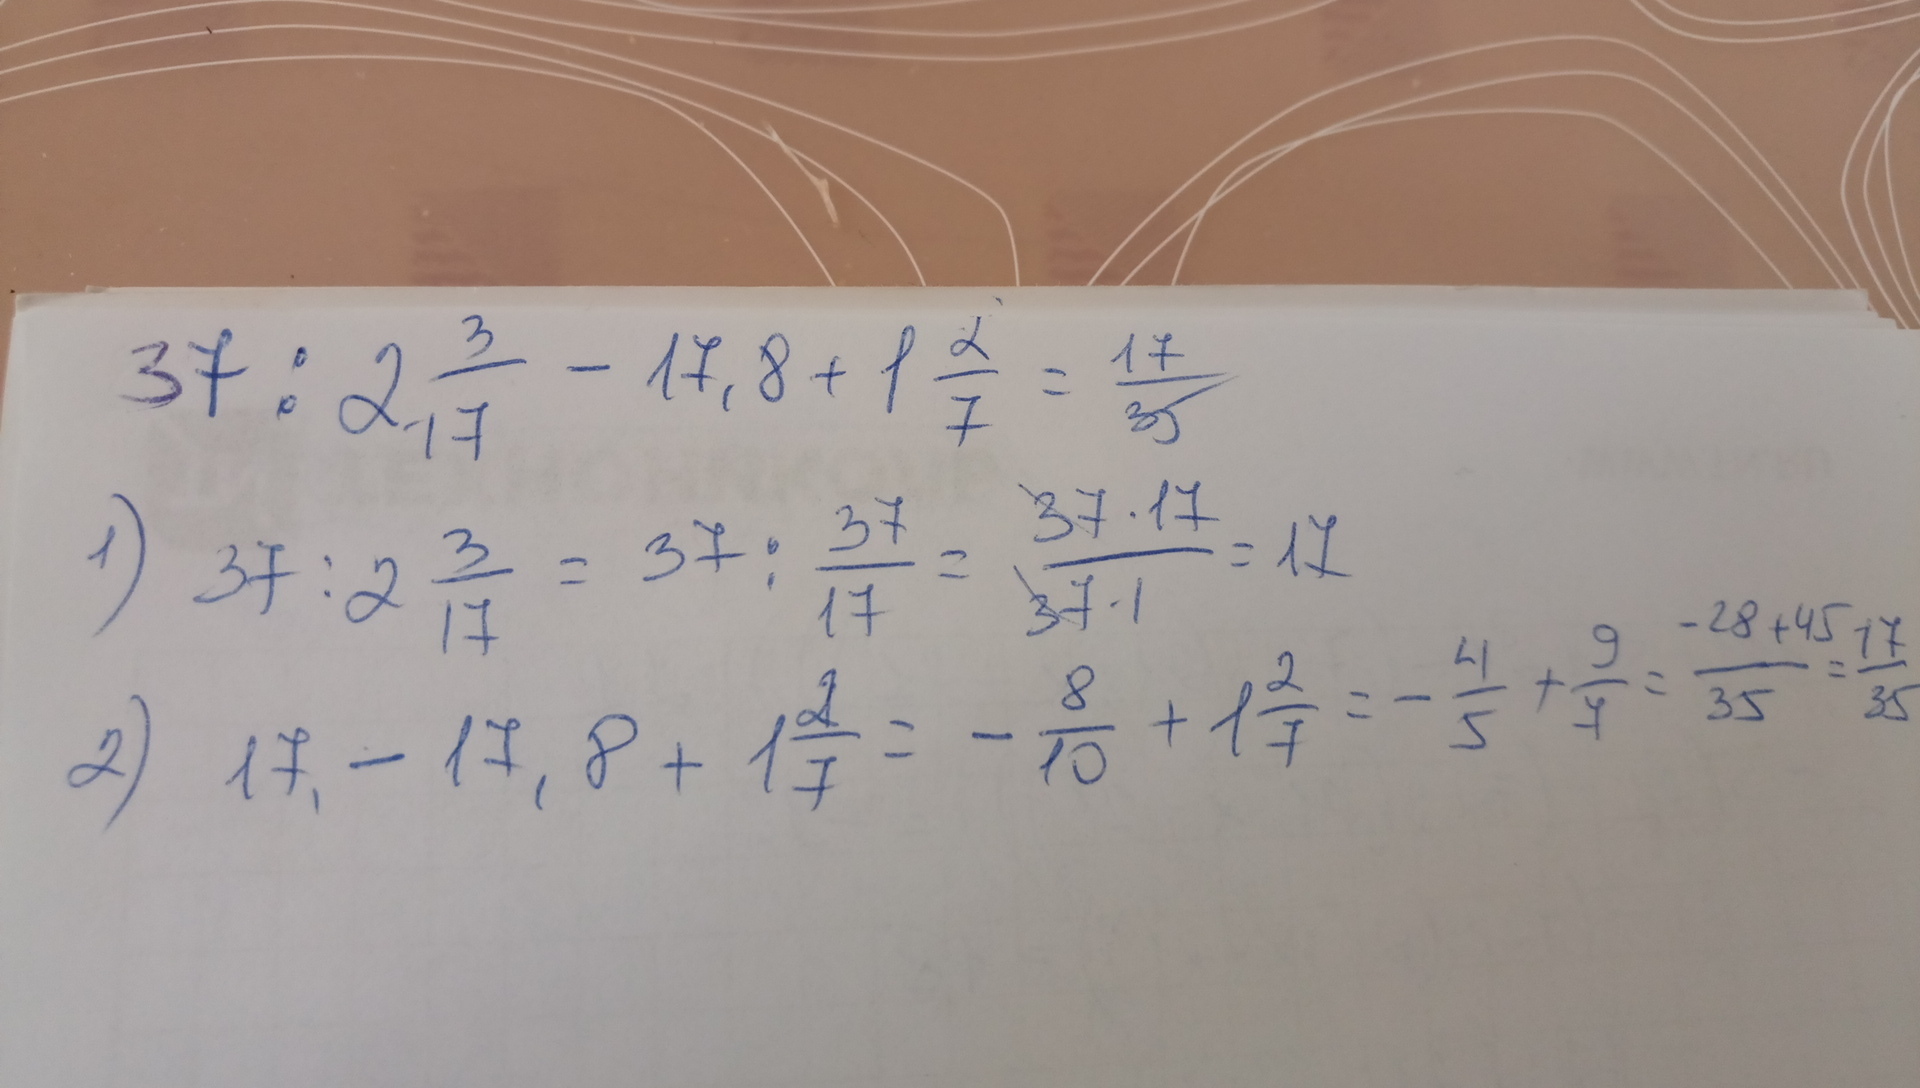 37 : 2 3/17 - 17,8 + 1 2/7 = 17/35
1) 37 : 2 3/17 = 37 : 37/17 = 37·17/37·1 = 17
2) 17, - 17,8 + 1 2/7 = - 8/10 + 1 2/7 = - 4/5 + 9/7 = -28+45/35 = 17/35